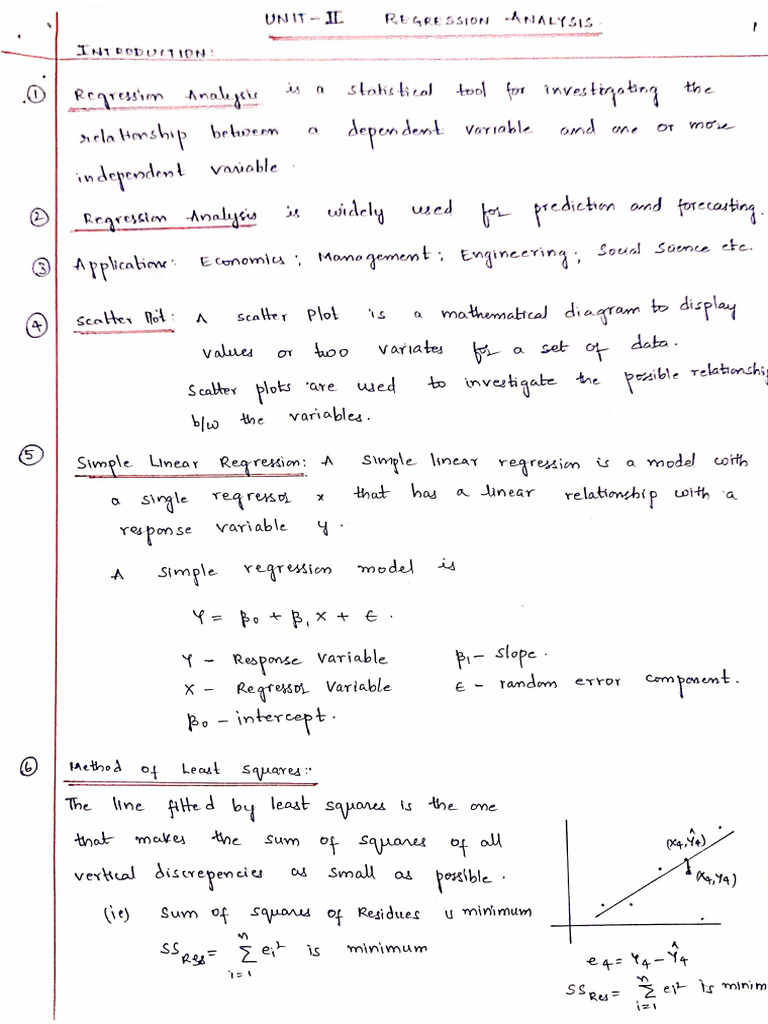 UNIT-II REGRESSION ANALYSIS. 1
INTRODUCTION:
① Regression Analysis is a statistical tool for investigating the
relationship between a dependent variable and one or more
independent variable.
② Regression Analysis is widely used for prediction and forecasting.
③ Applications: Economics; Management; Engineering; Social Science etc.
④ Scatter Plot: A scatter plot is a mathematical diagram to display
values or two variates for a set of data.
Scatter plots are used to investigate the possible relationship
b/w the variables.
⑤ Simple Linear Regression: A simple linear regression is a model with
a single regressor x that has a linear relationship with a
response variable y.
A simple regression model is
Y = β₀ + β₁ X + ε.
Y - Response Variable β₁ - slope.
X - Regressor Variable ε - random error component.
β₀ - intercept.
⑥ Method of Least Squares:-
The line fitted by least squares is the one
that makes the sum of squares of all
vertical discrepencies as small as possible.
(ie) Sum of squares of Residues is minimum
SS_Res = Σ_{i=1}^{n} eᵢ² is minimum
(X₄, Ŷ₄)
(X₄, Y₄)
e₄ = Y₄ - Ŷ₄
SS_Res = Σ_{i=1}^{n} eᵢ² is minim